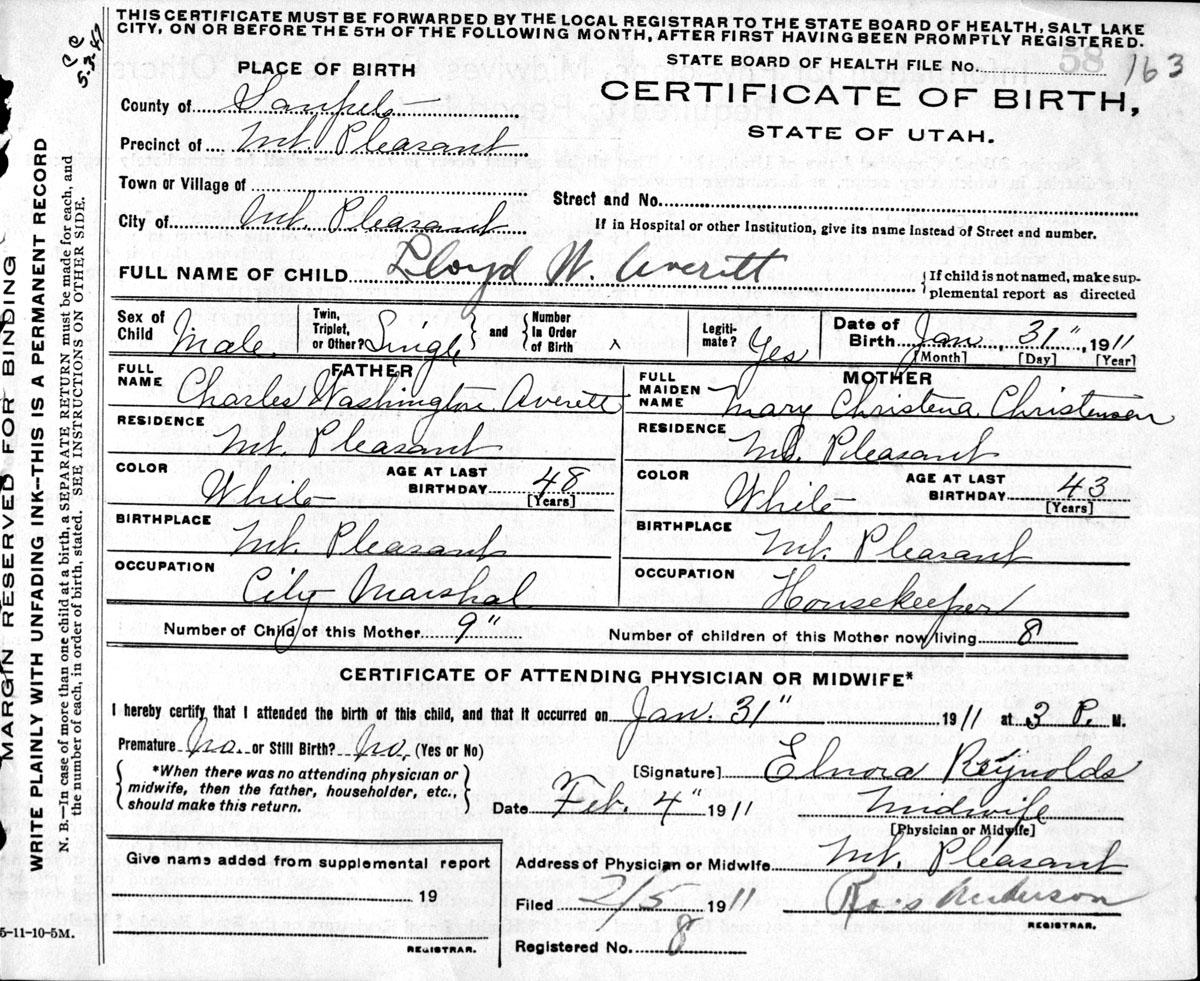 THIS CERTIFICATE MUST BE FORWARDED BY THE LOCAL REGISTRAR TO THE STATE BOARD OF HEALTH, SALT LAKE
CITY, ON OR BEFORE THE 5TH OF THE FOLLOWING MONTH, AFTER FIRST HAVING BEEN PROMPTLY REGISTERED.
STATE BOARD OF HEALTH FILE No. 58 163
PLACE OF BIRTH
CERTIFICATE OF BIRTH,
STATE OF UTAH.
County of Sanpete
Precinct of Mt. Pleasant
Town or Village of
Street and No.
City of Mt. Pleasant
If in Hospital or other Institution, give its name instead of Street and number.
FULL NAME OF CHILD Lloyd W. Averitt
If child is not named, make sup-
plemental report as directed
Sex of Child Male
Twin, Triplet, or Other? Single
and Number In Order of Birth
Legiti-mate? Yes
Date of Birth Jan. 31", 1911
[Month] [Day] [Year]
FATHER
FULL NAME Charles Washington Averett
RESIDENCE Mt. Pleasant
COLOR White
AGE AT LAST BIRTHDAY 48 [Years]
BIRTHPLACE Mt. Pleasant
OCCUPATION City Marshal
MOTHER
FULL MAIDEN NAME Mary Christena Christensen
RESIDENCE Mt. Pleasant
COLOR White
AGE AT LAST BIRTHDAY 43 [Years]
BIRTHPLACE Mt. Pleasant
OCCUPATION Housekeeper
Number of Child of this Mother 9" Number of children of this Mother now living 8
CERTIFICATE OF ATTENDING PHYSICIAN OR MIDWIFE*
I hereby certify that I attended the birth of this child, and that it occurred on Jan. 31" 1911 at 3 P. M.
Premature no or Still Birth? no (Yes or No)
*When there was no attending physician or
midwife, then the father, householder, etc.,
should make this return.
[Signature] Elnora Reynolds
Date Feb. 4" 1911 Midwife
[Physician or Midwife]
Give name added from supplemental report
19
REGISTRAR.
Address of Physician or Midwife Mt. Pleasant
Filed 2/5 1911 Anderson
REGISTRAR.
Registered No. 8
5-11-10-5M.
MARGIN RESERVED FOR BINDING
WRITE PLAINLY WITH UNFADING INK—THIS IS A PERMANENT RECORD
N. B.—In case of more than one child at a birth, a SEPARATE RETURN must be made for each, and
the number of each, in order of birth, stated. SEE INSTRUCTIONS ON OTHER SIDE.